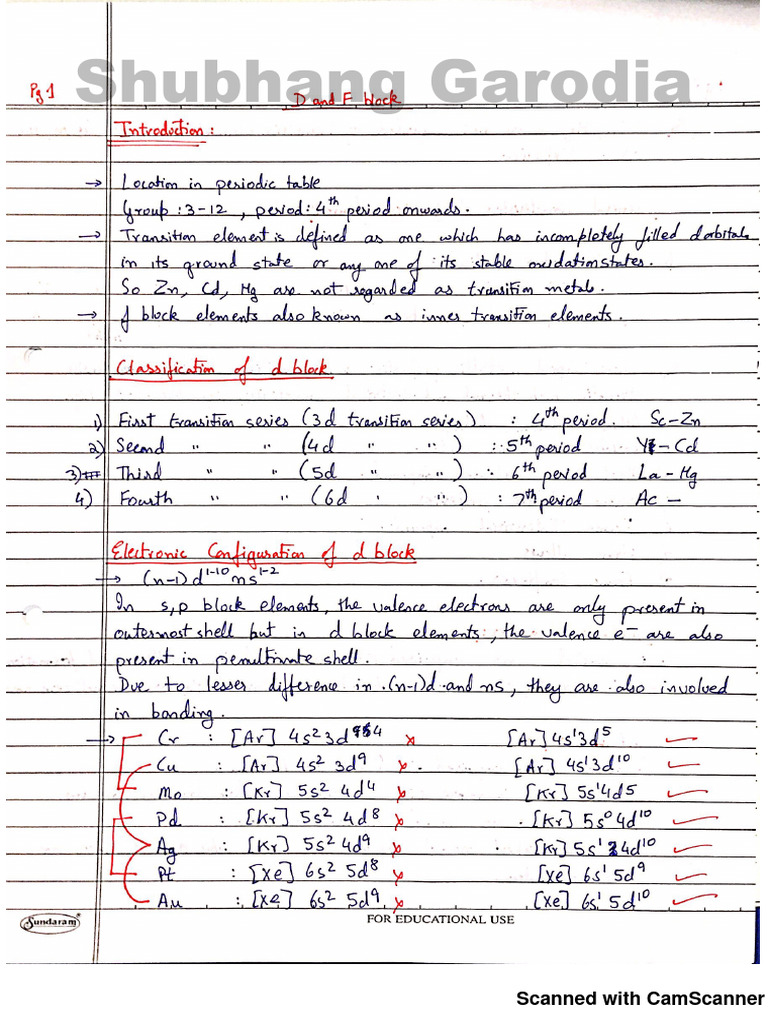 Shubhang Garodia
Pg 1
D and F block
Introduction:
→ Location in periodic table
Group : 3-12 , period : 4th period onwards.
→ Transition element is defined as one which has incompletely filled d orbitals
in its ground state or any one of its stable oxidation states.
So Zn, Cd, Hg are not regarded as transition metals.
→ f block elements also known as inner transition elements.
Classification of d block
1) First transition series (3d transition series) : 4th period. Sc-Zn
2) Second " " (4d " " ) : 5th period Y-Cd
3) Third " " (5d " " ) : 6th period La-Hg
4) Fourth " " (6d " " ) : 7th period Ac -
Electronic Configuration of d block
→ (n-1)d1-10 ns1-2
In s,p block elements, the valence electrons are only present in
outermost shell but in d block elements, the valence e- are also
present in penultimate shell.
Due to lesser difference in (n-1)d and ns, they are also involved
in bonding.
→ Cr : [Ar] 4s2 3d4 × [Ar] 4s1 3d5 ✓
Cu : [Ar] 4s2 3d9 × [Ar] 4s1 3d10 ✓
Mo : [Kr] 5s2 4d4 × [Kr] 5s1 4d5 ✓
Pd : [Kr] 5s2 4d8 × [Kr] 5s0 4d10 ✓
Ag : [Kr] 5s2 4d9 × [Kr] 5s1 4d10 ✓
Pt : [Xe] 6s2 5d8 × [Xe] 6s1 5d9 ✓
Au : [Xe] 6s2 5d9 × [Xe] 6s1 5d10 ✓
Sundaram
FOR EDUCATIONAL USE
Scanned with CamScanner